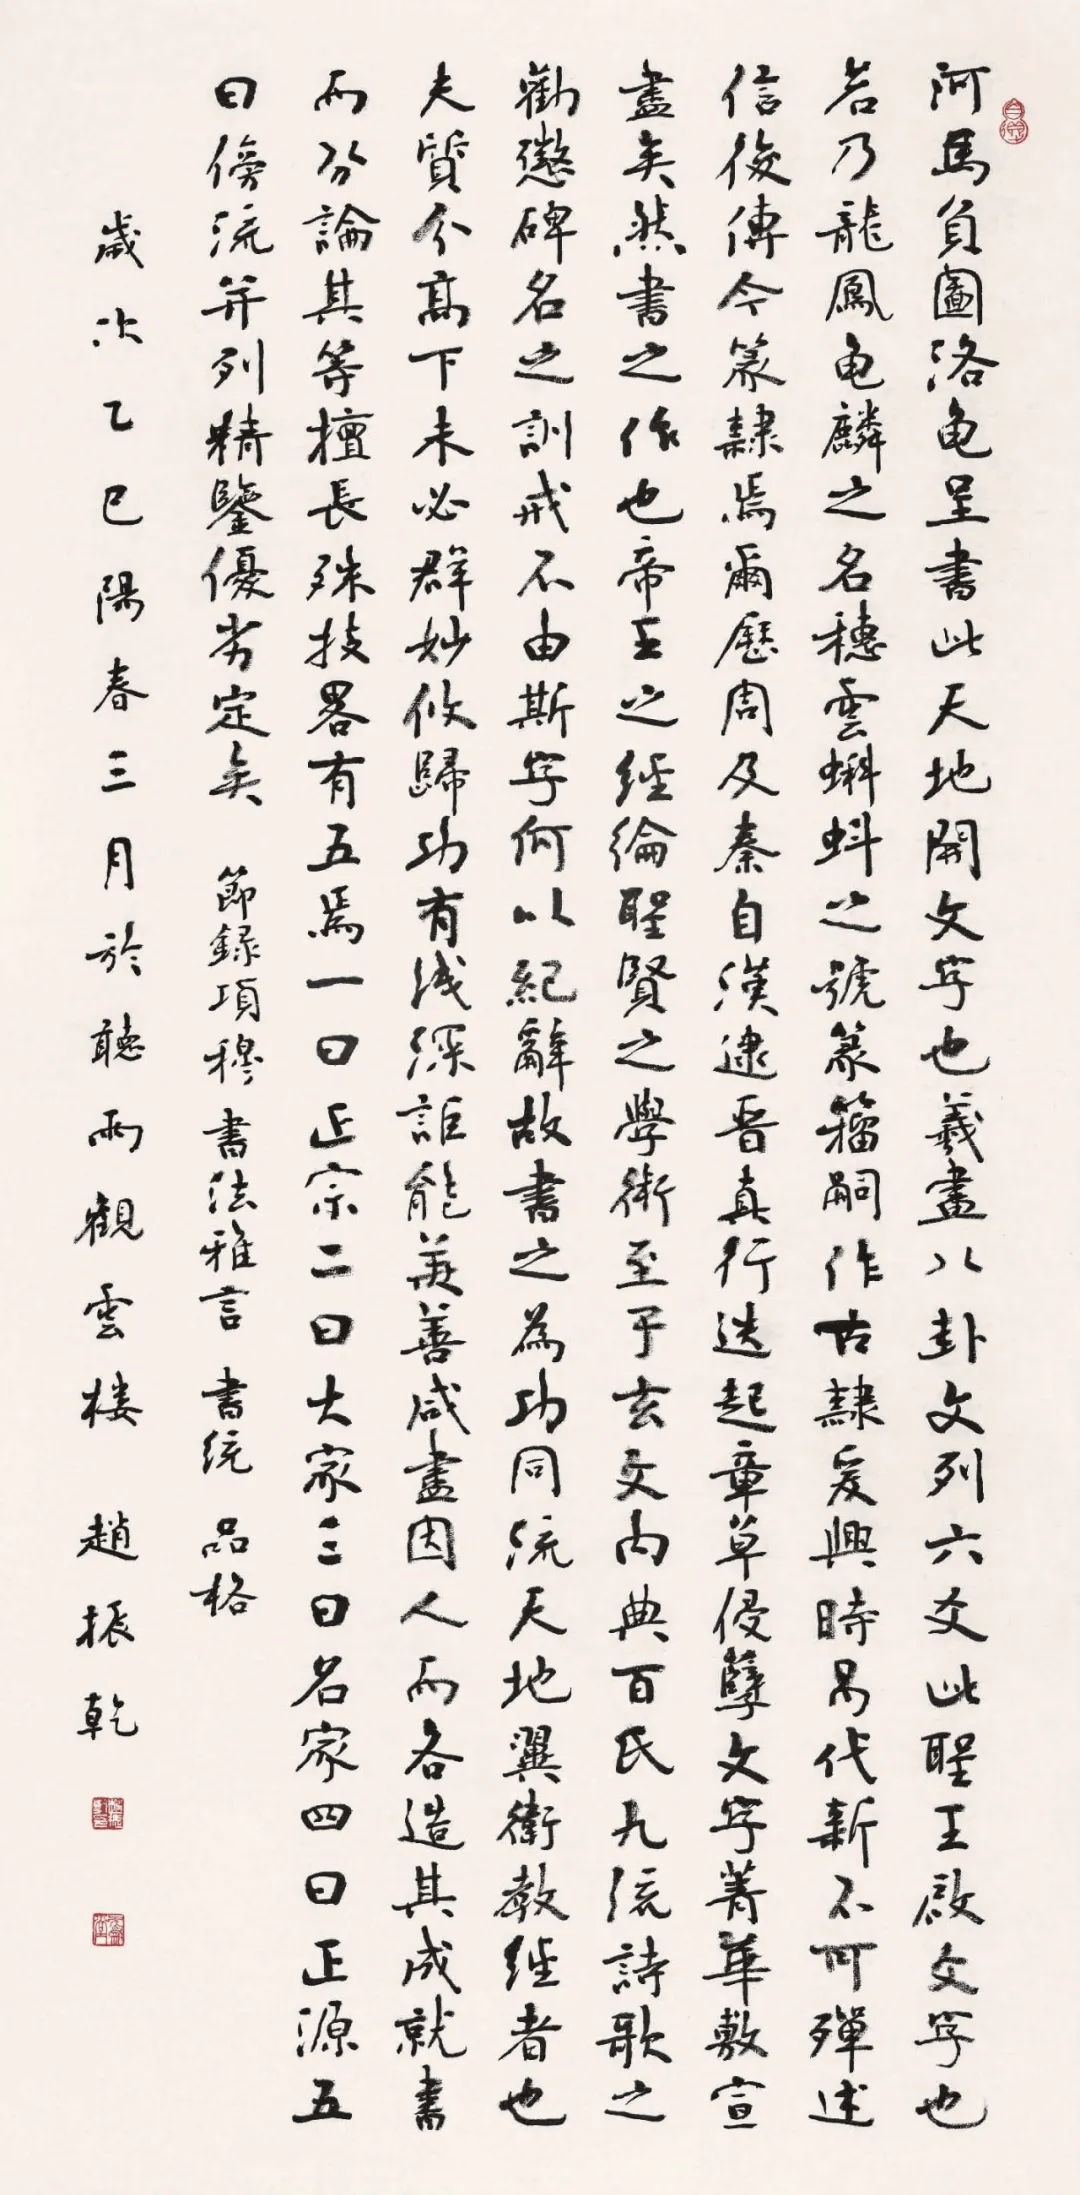 河馬負圖洛龟呈書此天地開文字也羲畫八卦文列六爻此聖王啟文字也
若乃龍鳳龟麟之名穗雲蝌蚪之號篆籀嗣作古隸爰興時易代新不可殫述
信後傳今篆隸焉爾歷周及秦自漢逮晋真行迭起章草侵孳文字菁華敷宣
盡矣然書之作也帝王之經綸聖賢之學術至于玄文内典百氏九流詩歌之
勸懲碑名之訓戒不由斯字何以紀辭故書之為功同流天地翼衛教經者也
夫質分高下未必群妙攸歸功有浅深詎能兼善咸盡因人而各造其成就書
而分論其等擅長殊技畧有五焉一曰正宗二曰大家三曰名家四曰正源五
曰傍流并列精鑒優劣定矣 節録項穆書法雅言 書统 品格
歲次乙巳陽春三月於聽雨觀雲楼 趙振乾